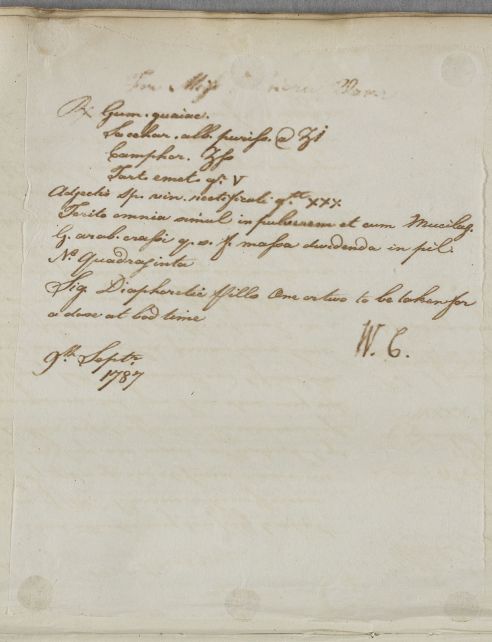 For Miss
℞ Gum. guaiac.
Sacchar. alb. puriss. a ʒi
Camphor. ʒss
Tart emet gr. V
Adjectis sp. vin. rectificati gtts xxx
Terito omnia simul in pulverem et cum Mucilag.
G. arab. crassi q. s. f. massa dividenda in pil.
No. Quadraginta
Sig. Diaphoretic Pills One or two to be taken for
a dose at bed time
W. C.
9th Septr.
1787